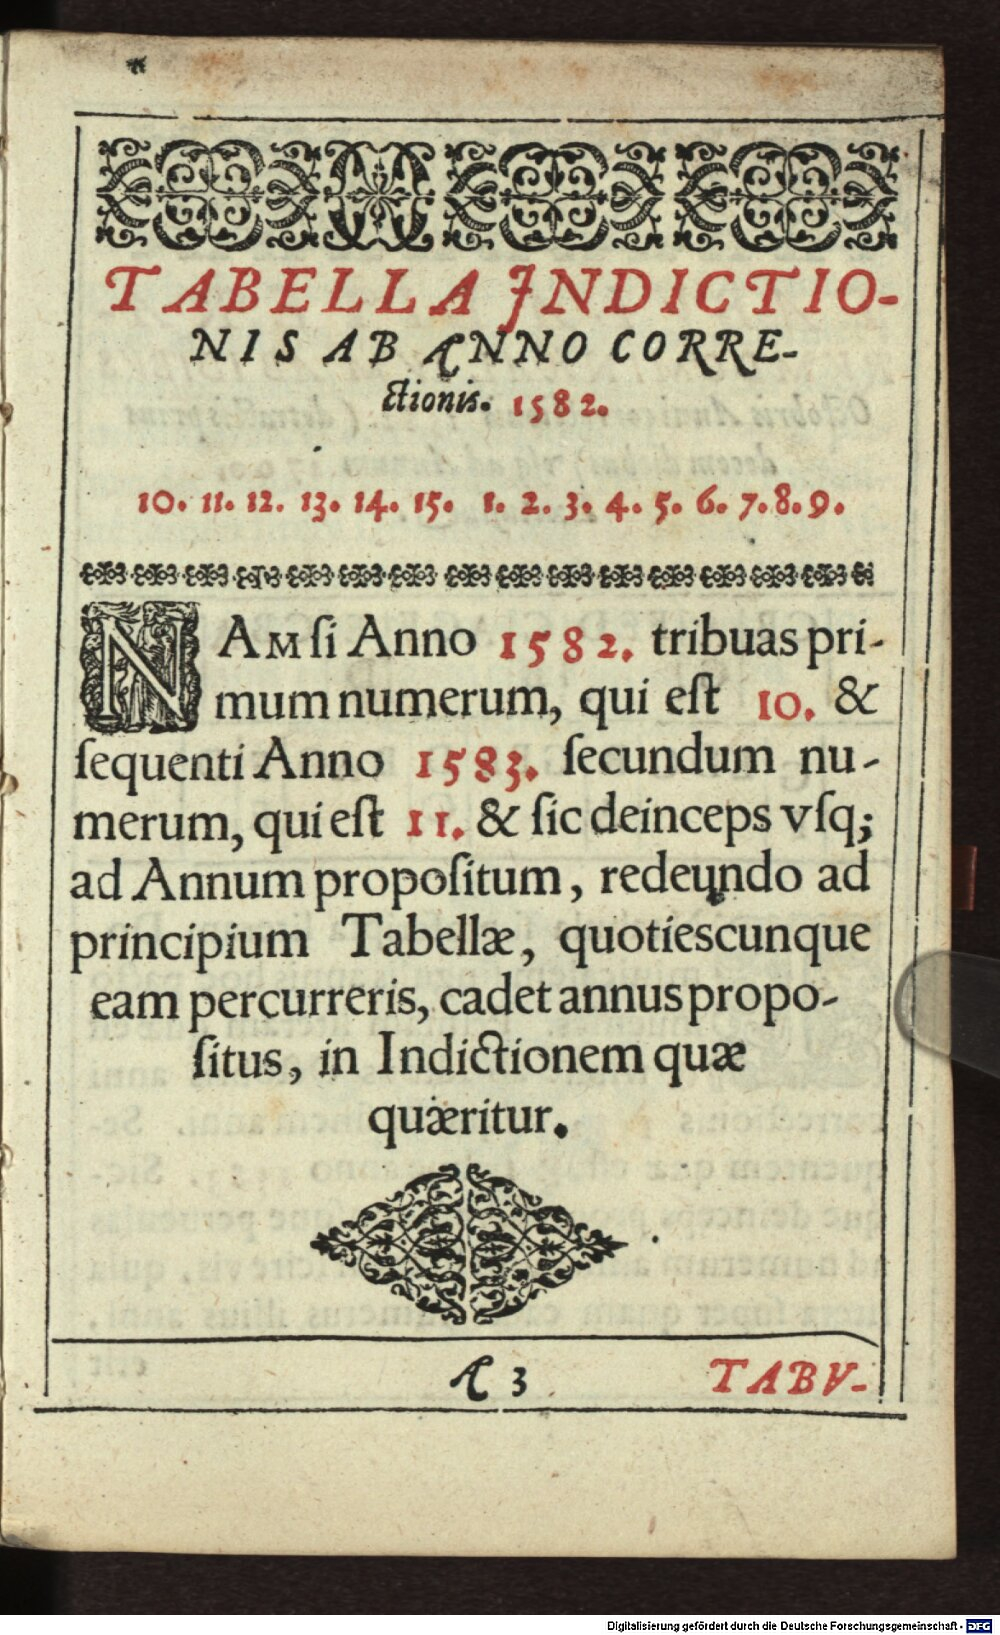 TABELLA INDICTIO-
NIS AB ANNO CORRE-
ctionis. 1582.
10. 11. 12. 13. 14. 15. 1. 2. 3. 4. 5. 6. 7. 8. 9.
NAM ſi Anno 1582. tribuas pri-
mum numerum, qui eſt 10. &
ſequenti Anno 1583. ſecundum nu-
merum, qui eſt 11. & ſic deinceps vſq;
ad Annum propoſitum, redeundo ad
principium Tabellæ, quotiescunque
eam percurreris, cadet annus propo-
ſitus, in Indictionem quæ
quæritur.
A 3 TABV-
Digitalisierung gefördert durch die Deutsche Forschungsgemeinschaft - DFG